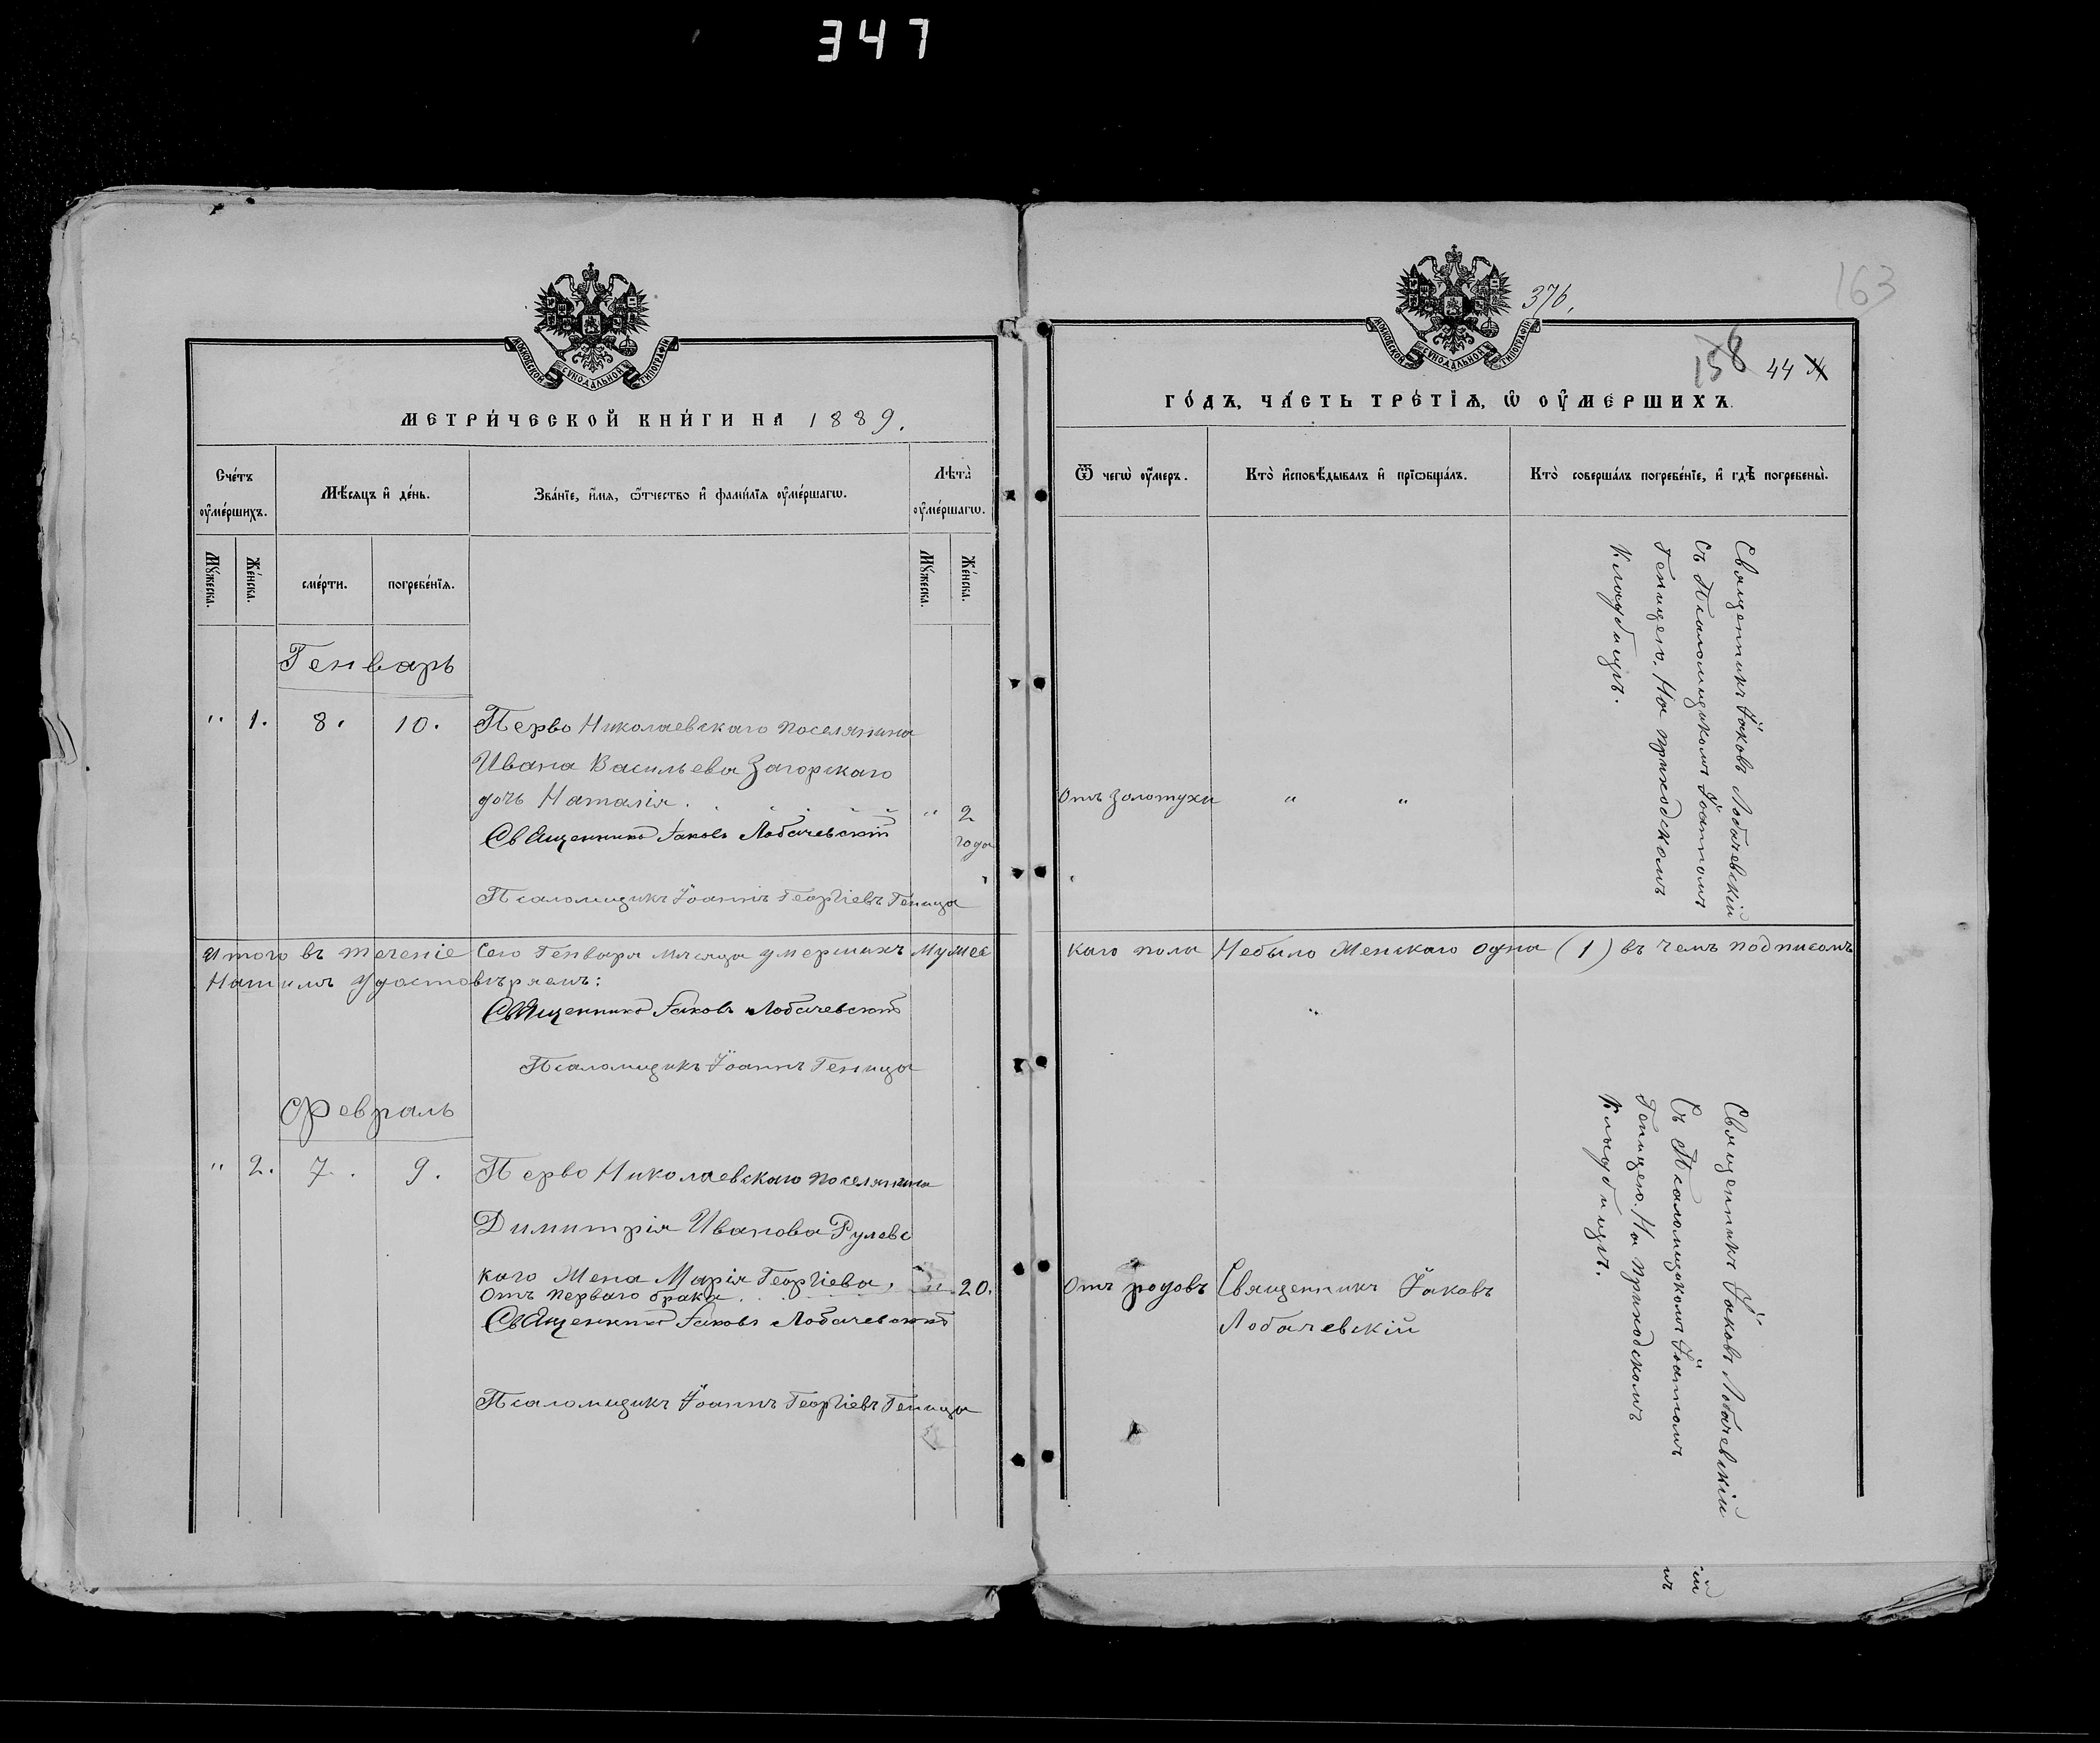 347
МОСКОВСКОЙ СѴНОДАЛЬНОЙ ТИПОГРАФІИ
МЕТРИ́ЧЕСКОЙ КНИ́ГИ НА 1889.
Сче́тъ ѹ҆ме́ршихъ.
Мѣ́сяцъ и҆ де́нь.
Зва́нїе, и҆́мѧ, ѻ҆́тчество и҆ фами́лїѧ ѹ҆ме́ршагѡ.
Лѣта̀ ѹ҆ме́ршагѡ.
Мꙋ́жеска.
Же́нска.
сме́рти.
погребе́нїѧ.
Мꙋ́жеска.
Же́нска.
Генварь
" 1. 8. 10. Перво Николаевскаго поселянина
Ивана Васильева Загорскаго
дочь Наталія. " 2
Священникъ Іаковъ Лобачевскій года
Псаломщикъ Іоаннъ Георгіевъ Геница
Итого въ теченіе Сего Генваря мѣсяца умершихъ мужес
Нашимъ удостовѣряемъ:
Священникъ Іаковъ Лобачевскій
Псаломщикъ Іоаннъ Геница
Февраль
" 2. 7. 9. Перво Николаевскаго поселянина
Димитрія Иванова Рулевс
каго Жена Марія Георгіева, " 20.
Отъ перваго брака
Священникъ Іаковъ Лобачевскій
Псаломщикъ Іоаннъ Георгіевъ Геница
376.
163
158 44
МОСКОВСКОЙ СѴНОДАЛЬНОЙ ТИПОГРАФІИ
ГО́ДЪ, ЧА́СТЬ ТРЕ́ТІѦ, Ѡ҆ ОУ҆МЕ́РШИХЪ.
Ѿ чегѡ̀ ѹ҆́меръ.
Кто̀ и҆сповѣ́дывалъ и҆ прїѡбща́лъ.
Кто̀ соверша́лъ погребе́нїе, и҆ гдѣ̀ погребены̀.
Отъ золотухи " "
Священникъ Іаковъ Лобачевскій
Съ Псаломщикомъ Іоанномъ
Геницею. На приходскомъ
Кладбищѣ.
каго пола Небыло Женскаго Одна (1) въ чемъ подписомъ
Отъ родовъ Священникъ Іаковъ
Лобачевскій
Священникъ Іаковъ Лобачевскій
Съ Псаломщикомъ Іоанномъ
Геницею. На приходскомъ
Кладбищѣ.